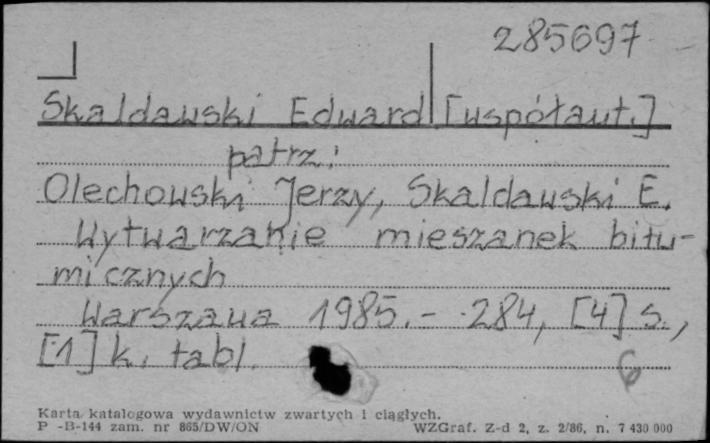 285697
Skaldawski Edward [współaut.]
patrz:
Olechowski Jerzy, Skaldawski E.
Wytwarzanie mieszanek bitu-
micznych
Warszawa 1985. - 284, [4] s.,
[1] k. tabl.
6
Karta katalogowa wydawnictw zwartych i ciągłych.
P -B-144 zam. nr 865/DW/ON WZGraf. Z-d 2, z. 2/86, n. 7 430 000